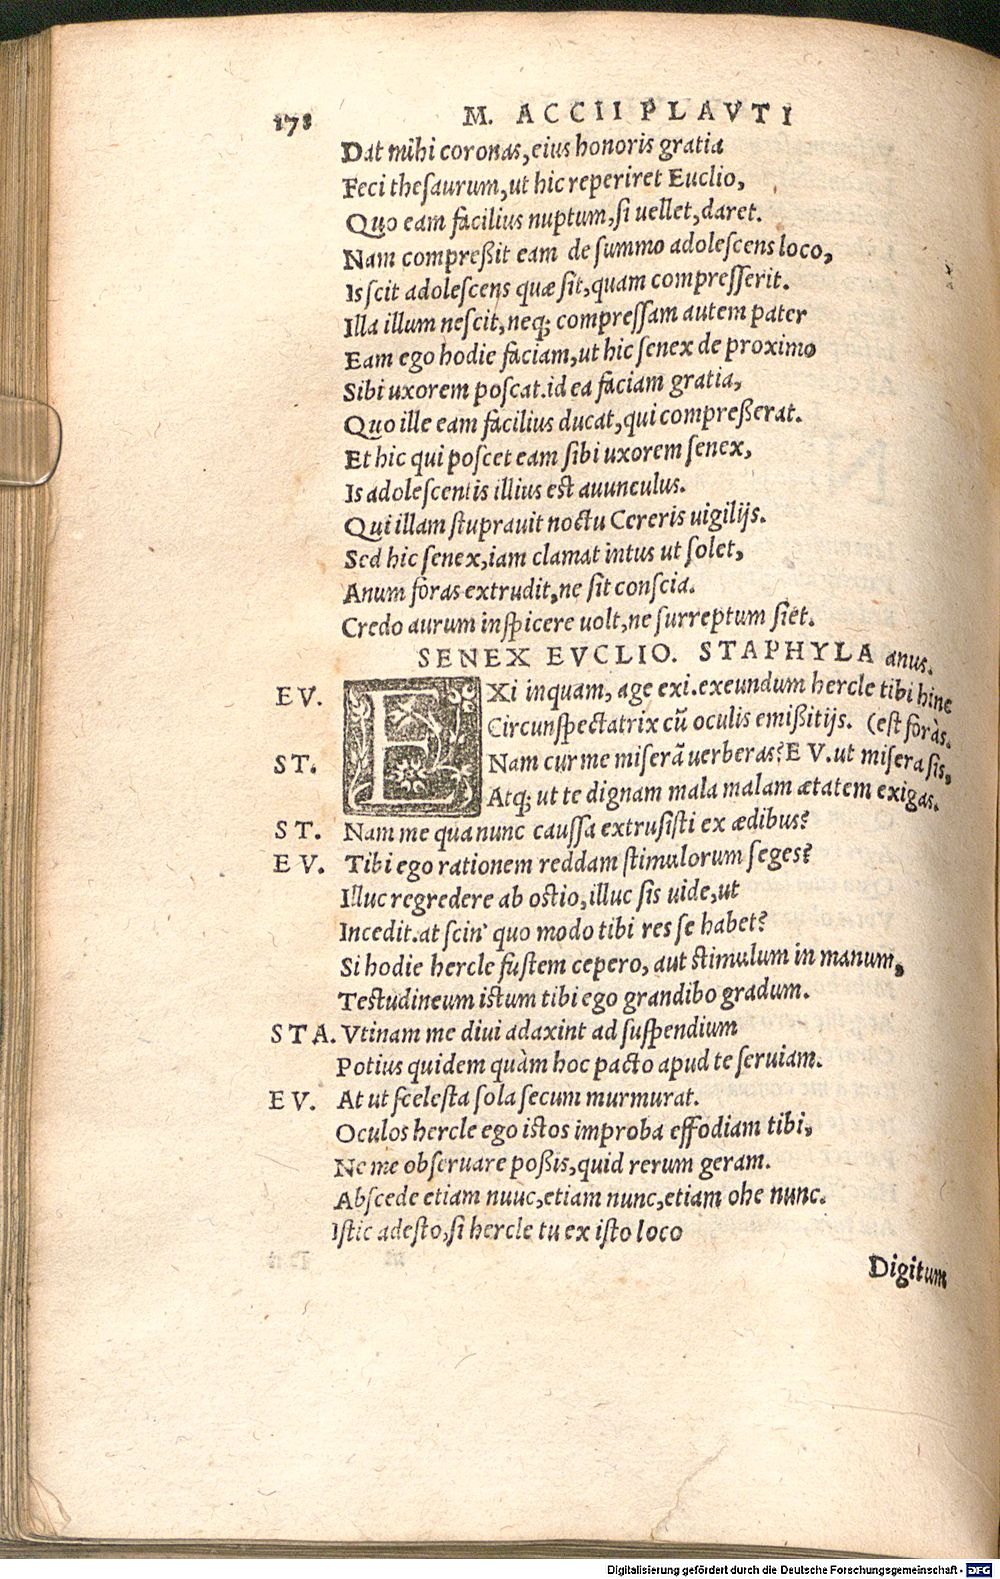 178 M. ACCII PLAVTI
Dat mihi coronas, eius honoris gratia
Feci thesaurum, ut hic reperiret Euclio,
Quo eam facilius nuptum, si uellet, daret.
Nam compreßit eam de summo adolescens loco,
Is scit adolescens quæ sit, quam compresserit.
Illa illum nescit, neq; compressam autem pater
Eam ego hodie faciam, ut hic senex de proximo
Sibi uxorem poscat. id ea faciam gratia,
Quo ille eam facilius ducat, qui compreßerat.
Et hic qui poscet eam sibi uxorem senex,
Is adolescentis illius est auunculus.
Qui illam stuprauit noctu Cereris uigilijs.
Sed hic senex, iam clamat intus ut solet,
Anum foras extrudit, ne sit conscia.
Credo aurum inspicere uolt, ne surreptum siet.
SENEX EVCLIO. STAPHYLA anus.
EV. EXi inquam, age exi. exeundum hercle tibi hinc
Circunspectatrix cū oculis emißitijs. (est foràs.
ST. Nam cur me miserã uerberas? EV. ut misera sis,
Atq; ut te dignam mala malam ætatem exigas.
ST. Nam me qua nunc caussa extrusisti ex ædibus?
EV. Tibi ego rationem reddam stimulorum seges?
Illuc regredere ab ostio, illuc sis uide, ut
Incedit. at scin' quo modo tibi res se habet?
Si hodie hercle fustem cepero, aut stimulum in manum,
Testudineum istum tibi ego grandibo gradum.
STA. Vtinam me diui adaxint ad suspendium
Potius quidem quàm hoc pacto apud te seruiam.
EV. At ut scelesta sola secum murmurat.
Oculos hercle ego istos improba effodiam tibi,
Ne me obseruare poßis, quid rerum geram.
Abscede etiam nuuc, etiam nunc, etiam ohe nunc.
Istic adesto, si hercle tu ex isto loco
Digitum
Digitalisierung gefördert durch die Deutsche Forschungsgemeinschaft - DFG